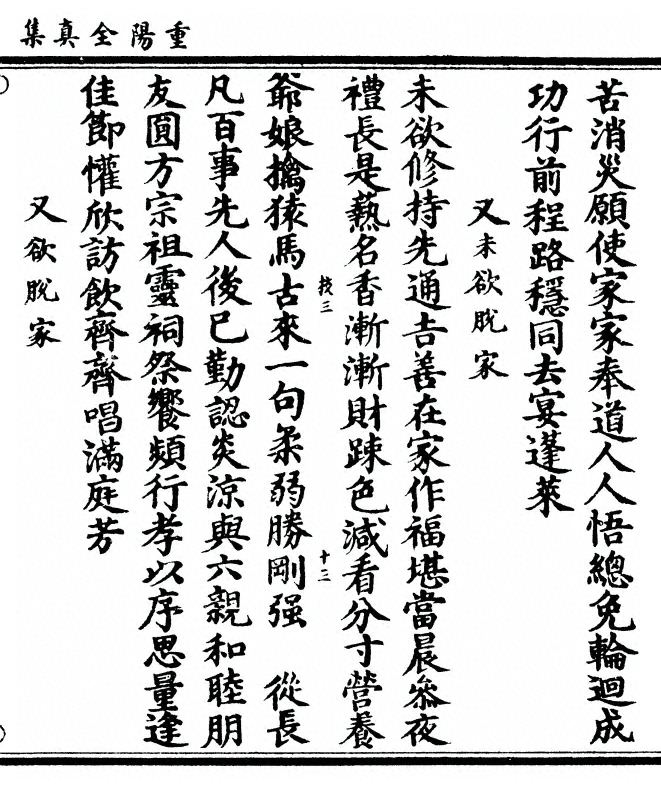 重陽全真集
苦消災願使家家奉道人人悟總免輪迴成
功行前程路穩同去宴蓬萊
又未欲脫家
未欲修持先通吉善在家作福堪當晨叅夜
禮長是爇名香漸漸財踈色減看分寸營養
爺娘擒猿馬古來一句柔弱勝剛强　從長
技三
十三
凡百事先人後已勤認炎涼與六親和睦朋
友圓方宗祖靈祠祭饗頻行孝以序思量逢
佳節懽欣訪飲齊齊唱滿庭芳
又欲脫家